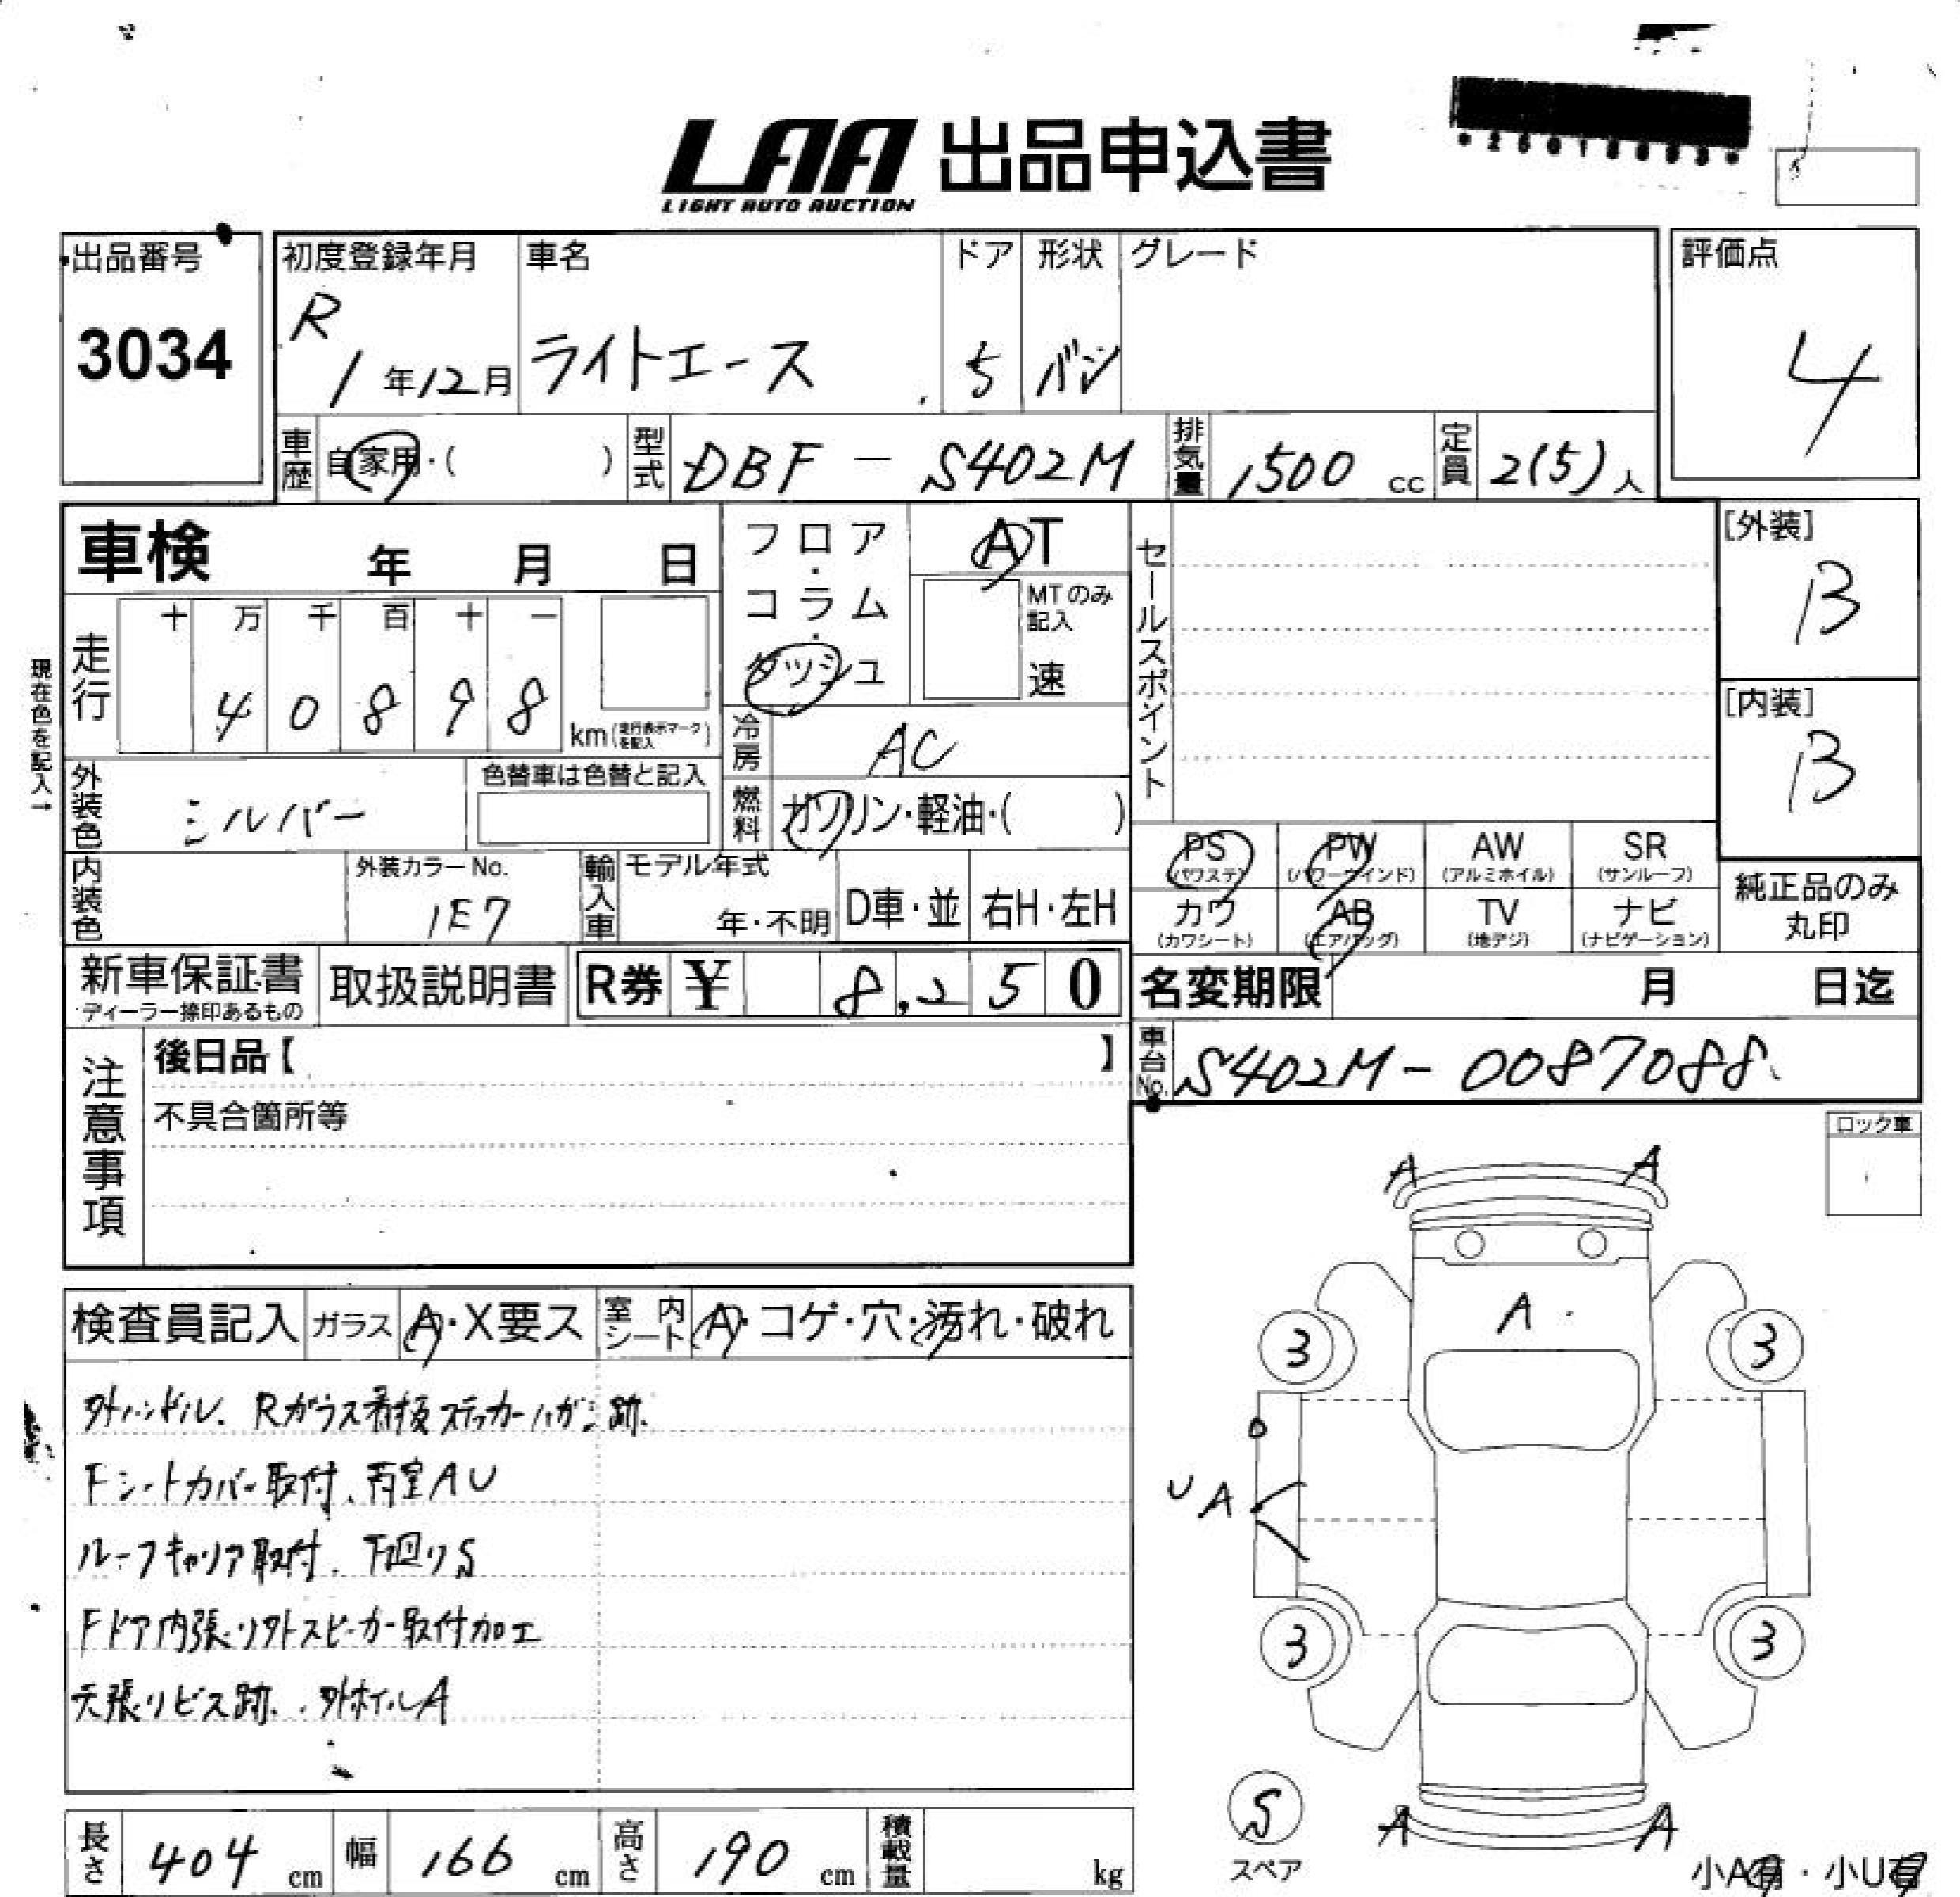 LAA 出品申込書
LIGHT AUTO AUCTION
出品番号
3034
初度登録年月
R
1年12月
車名
ライトエース
ドア
5
形状
バン
グレード
評価点
4
車歴 自家用・( )
型式 DBF-S402M
排気量 1500 cc
定員 2(5)人
車検 年 月 日
フロア・コラム・ダッシュ
AT
MTのみ記入
速
セールスポイント
[外装]
B
[内装]
B
現在色を記入→
走行
十 万 千 百 十 一
4 0 8 9 8
km(走行表示マークを記入)
冷房 AC
外装色 シルバー
色替車は色替と記入
燃料 ガソリン・軽油・( )
PS (パワステ)
PW (パワーウインド)
AW (アルミホイル)
SR (サンルーフ)
カワ (カワシート)
AB (エアバッグ)
TV (地デジ)
ナビ (ナビゲーション)
純正品のみ
丸印
内装色
外装カラーNo.
1E7
輸入車
モデル年式
年・不明
D車・並
右H・左H
新車保証書
ディーラー捺印あるもの
取扱説明書
R券 ¥ 8,250
名変期限 月 日迄
注意事項
後日品【 】
不具合箇所等
車台No. S402M-0087088
ロック車
検査員記入
ガラス A・X要ス
室内シート A・コゲ・穴・汚れ・破れ
外ハンドル、Rガラス看板ステッカーハガシ跡、
Fシートカバー取付、荷室AU
ルーフキャリア取付、下廻りS
Fドア内張り外スピーカー取付加工
天張りビス跡、外ホイルA
A A
A
3 3
U A
3 3
A A
S
スペア
小A有・小U有
長さ 404 cm
幅 166 cm
高さ 190 cm
積載量 kg